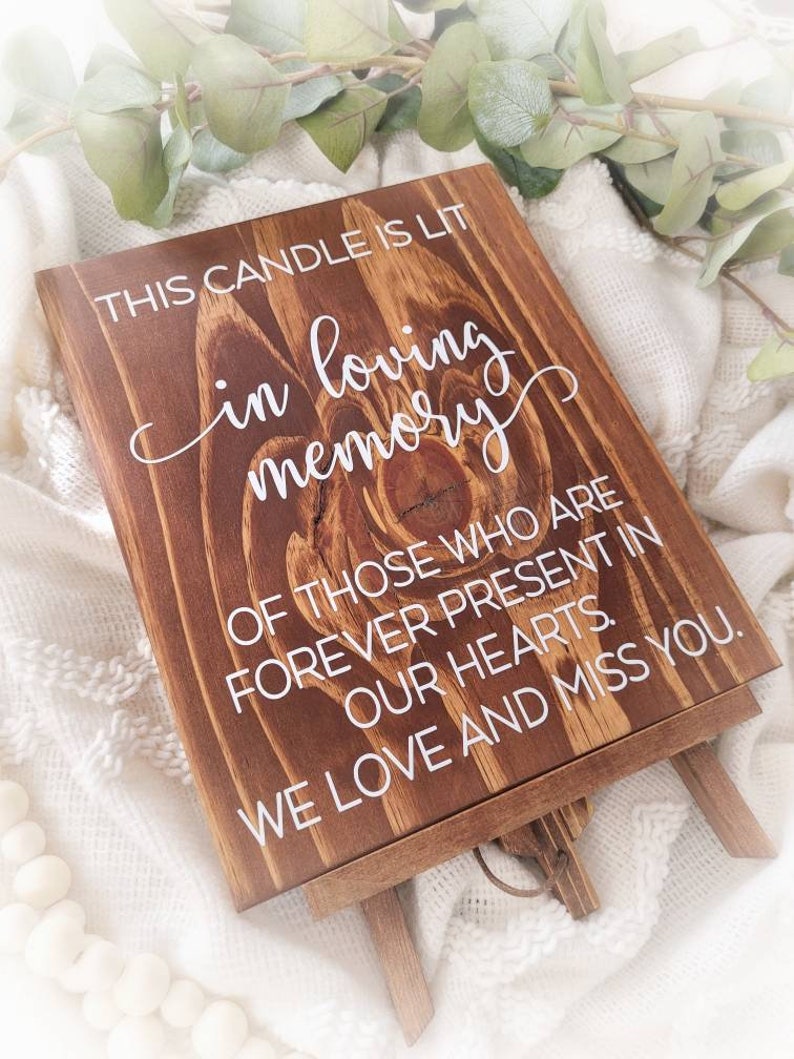 THIS CANDLE IS LIT
in loving
memory
OF THOSE WHO ARE
FOREVER PRESENT IN
OUR HEARTS.
WE LOVE AND MISS YOU.